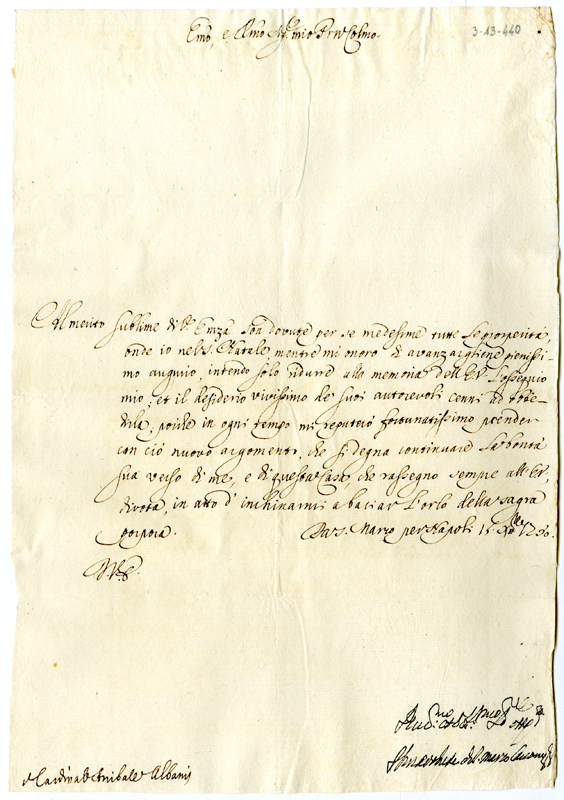 Emo, e Rmo Sigre mio Prn Colmo
3-13-440
Al merito sublime di V. Emza son dovute per se medesime tutte le prosperità,
onde io nel S. Natale, mentre mi onoro di avanzargliene pienissi-
mo augurio, intendo solo ridurre alla memoria dell'E.V. l'ossequio
mio, et il desiderio vivissimo de suoi autorevoli cenni ad obbe-
dirla, poiche in ogni tempo mi reputerò fortunatissimo prender
con ciò nuovo argomento, che si degna continuare la bontà
sua verso di me, e di questa Casa, che rassegno sempre all'E.V.
divota, in atto d'inchinarmi a baciar l'orlo della sagra
porpora. S. Marzo per Napoli 15 Xbre 1730.
V. E.
Il Marchese del
Cardinale Annibale Albani